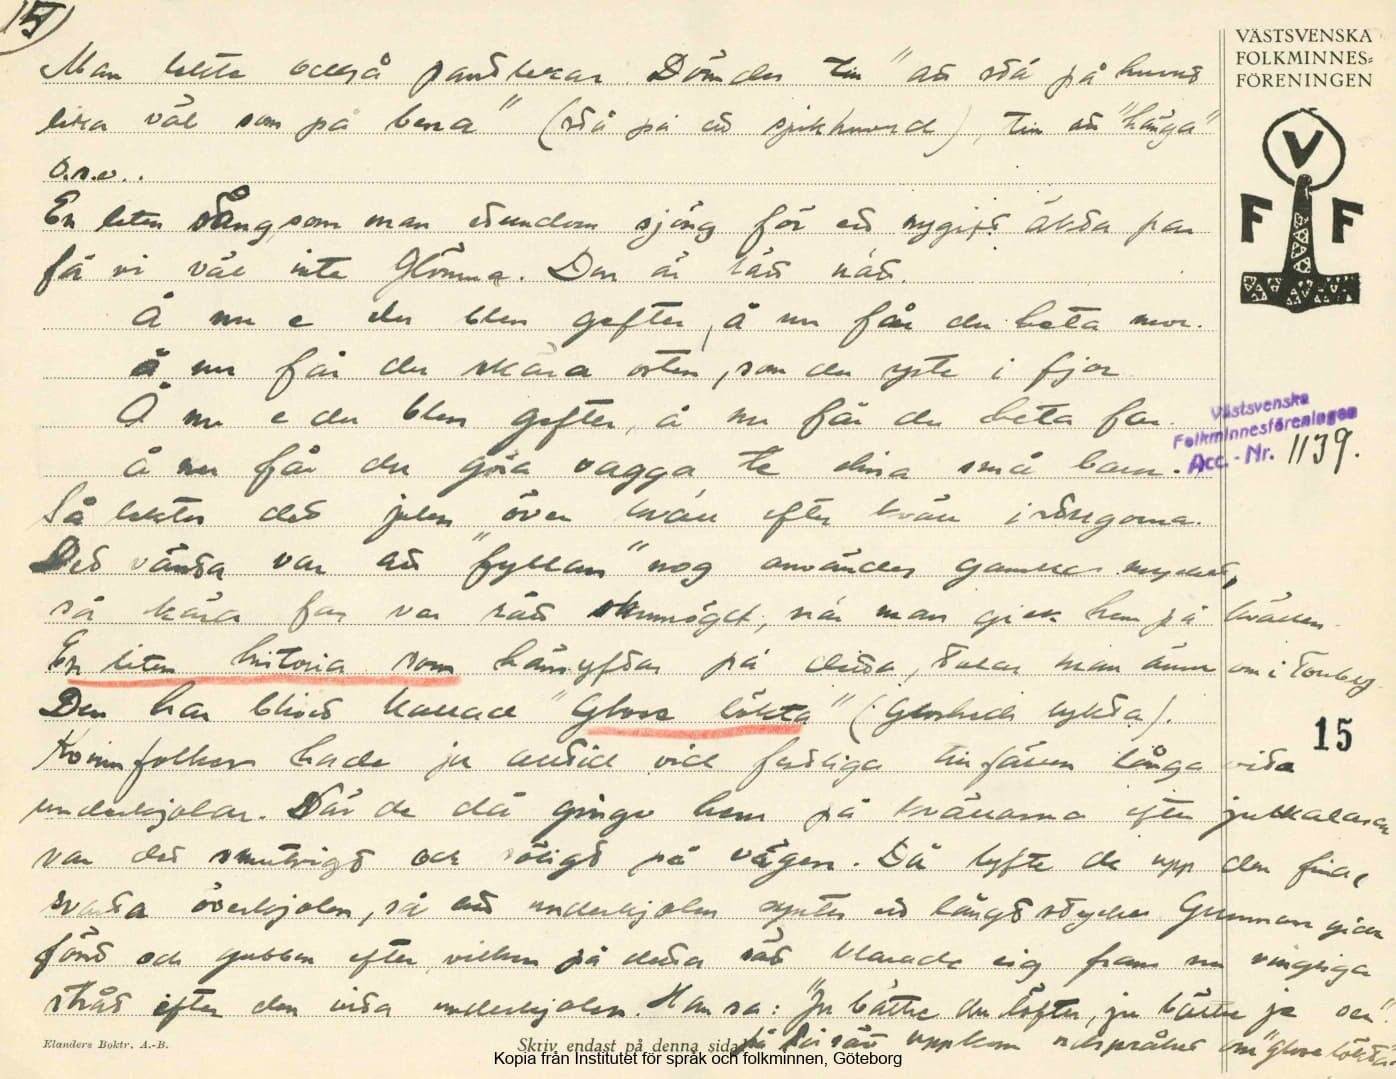 15)
VÄSTSVENSKA
FOLKMINNES-
FÖRENINGEN
V
F F
Man lekte också pantlekar. Dömdes till "att stå på huvud
lika väl som på bena" (stå på ett spikhuvud), till att "hänga"
o.s.v..
En liten sång, som man istundom sjöng för ett nygift äkta par
få vi väl inte glömma. Den är låt så.
Å nu e du blen gefter, å nu får du heta mor.
å nu får du skära osten, som du yste i fjor
Å nu e du blen gefter, å nu får du heta far.
å nu får du göra vagga te dina små barn.
Så lektes det julen över kväll efter kväll i stugorna.
Det värsta var att "fyllan" nog användes ganska mycket,
så kära far var rätt skumögt, när man gick hem på kvällen.
En liten historia som hänsyftar på detta, talar man ännu om i Torsby.
Den har blivit kallad "Glose lökta" (Glosheds lykta).
Kvinnfolken hade ju alltid vid festliga tillfällen långa vita
underkjolar. När de då gingo hem på kvällarna efter julkalasen
var det smutsigt och sörigt på vägen. Då lyfte de upp den fina,
svarta överkjolen, så att underkjolen syntes ett långt stycke. Gumman gick
först och gubben efter, vilken på detta sätt klarade sig fram nu vingliga
stråt efter den vita underkjolen. Han sa: "Ju bättre du löfter, ju bättre ja ser".
på så sätt uppkom ordspråket om "glose lökta".
Västsvenska
Folkminnesföreningen
Acc. - Nr. 1139.
15
Elanders Boktr. A.-B.
Skriv endast på denna sida!
Kopia från Institutet för språk och folkminnen, Göteborg